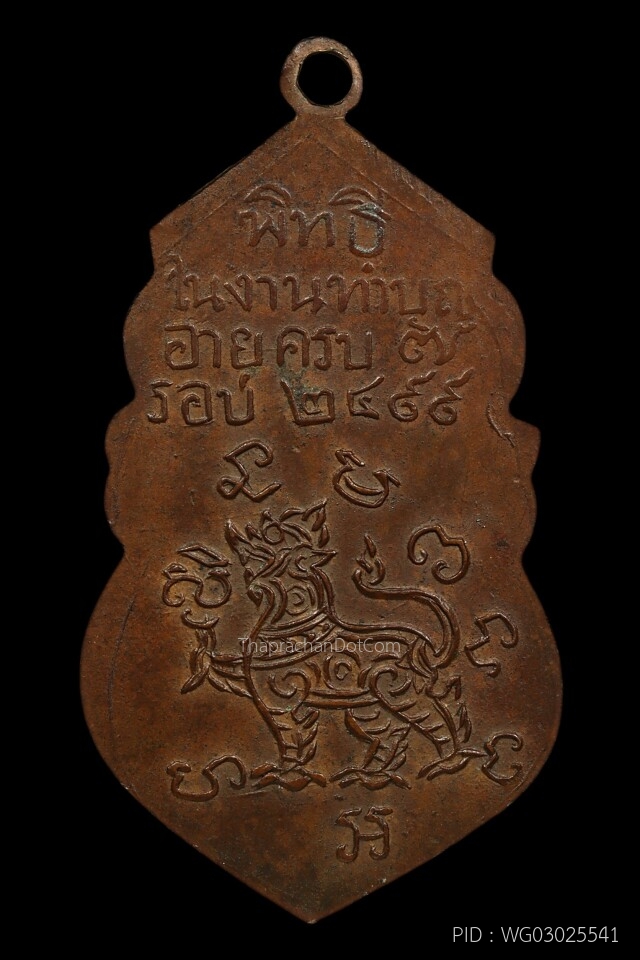 พิทธี
ในงานทำบุญ
อายุครบ ๗
รอบ ๒๔๙๙
ThaprachanDotCom
PID : WG03025541